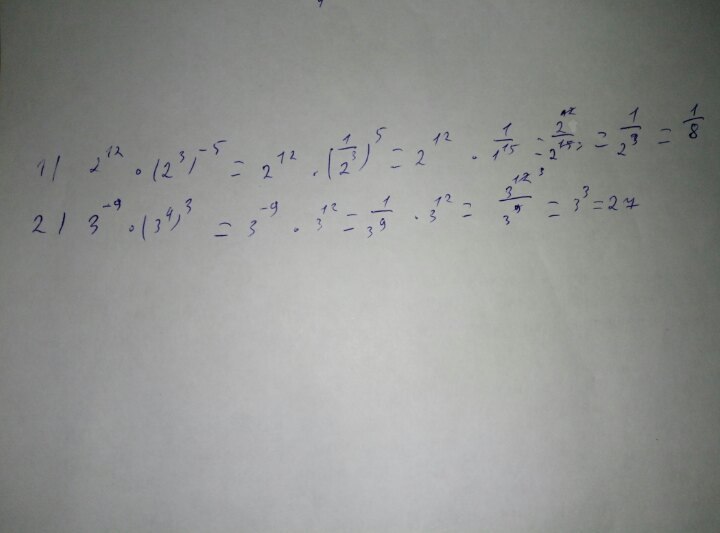 1) 2^12 · (2^3)^-5 = 2^12 · (1/2^3)^5 = 2^12 · 1/1^15 = 2^12/2^15 3 = 1/2^3 = 1/8
2) 3^-9 · (3^4)^3 = 3^-9 · 3^12 = 1/3^9 · 3^12 = 3^12 3/3^9 = 3^3 = 27